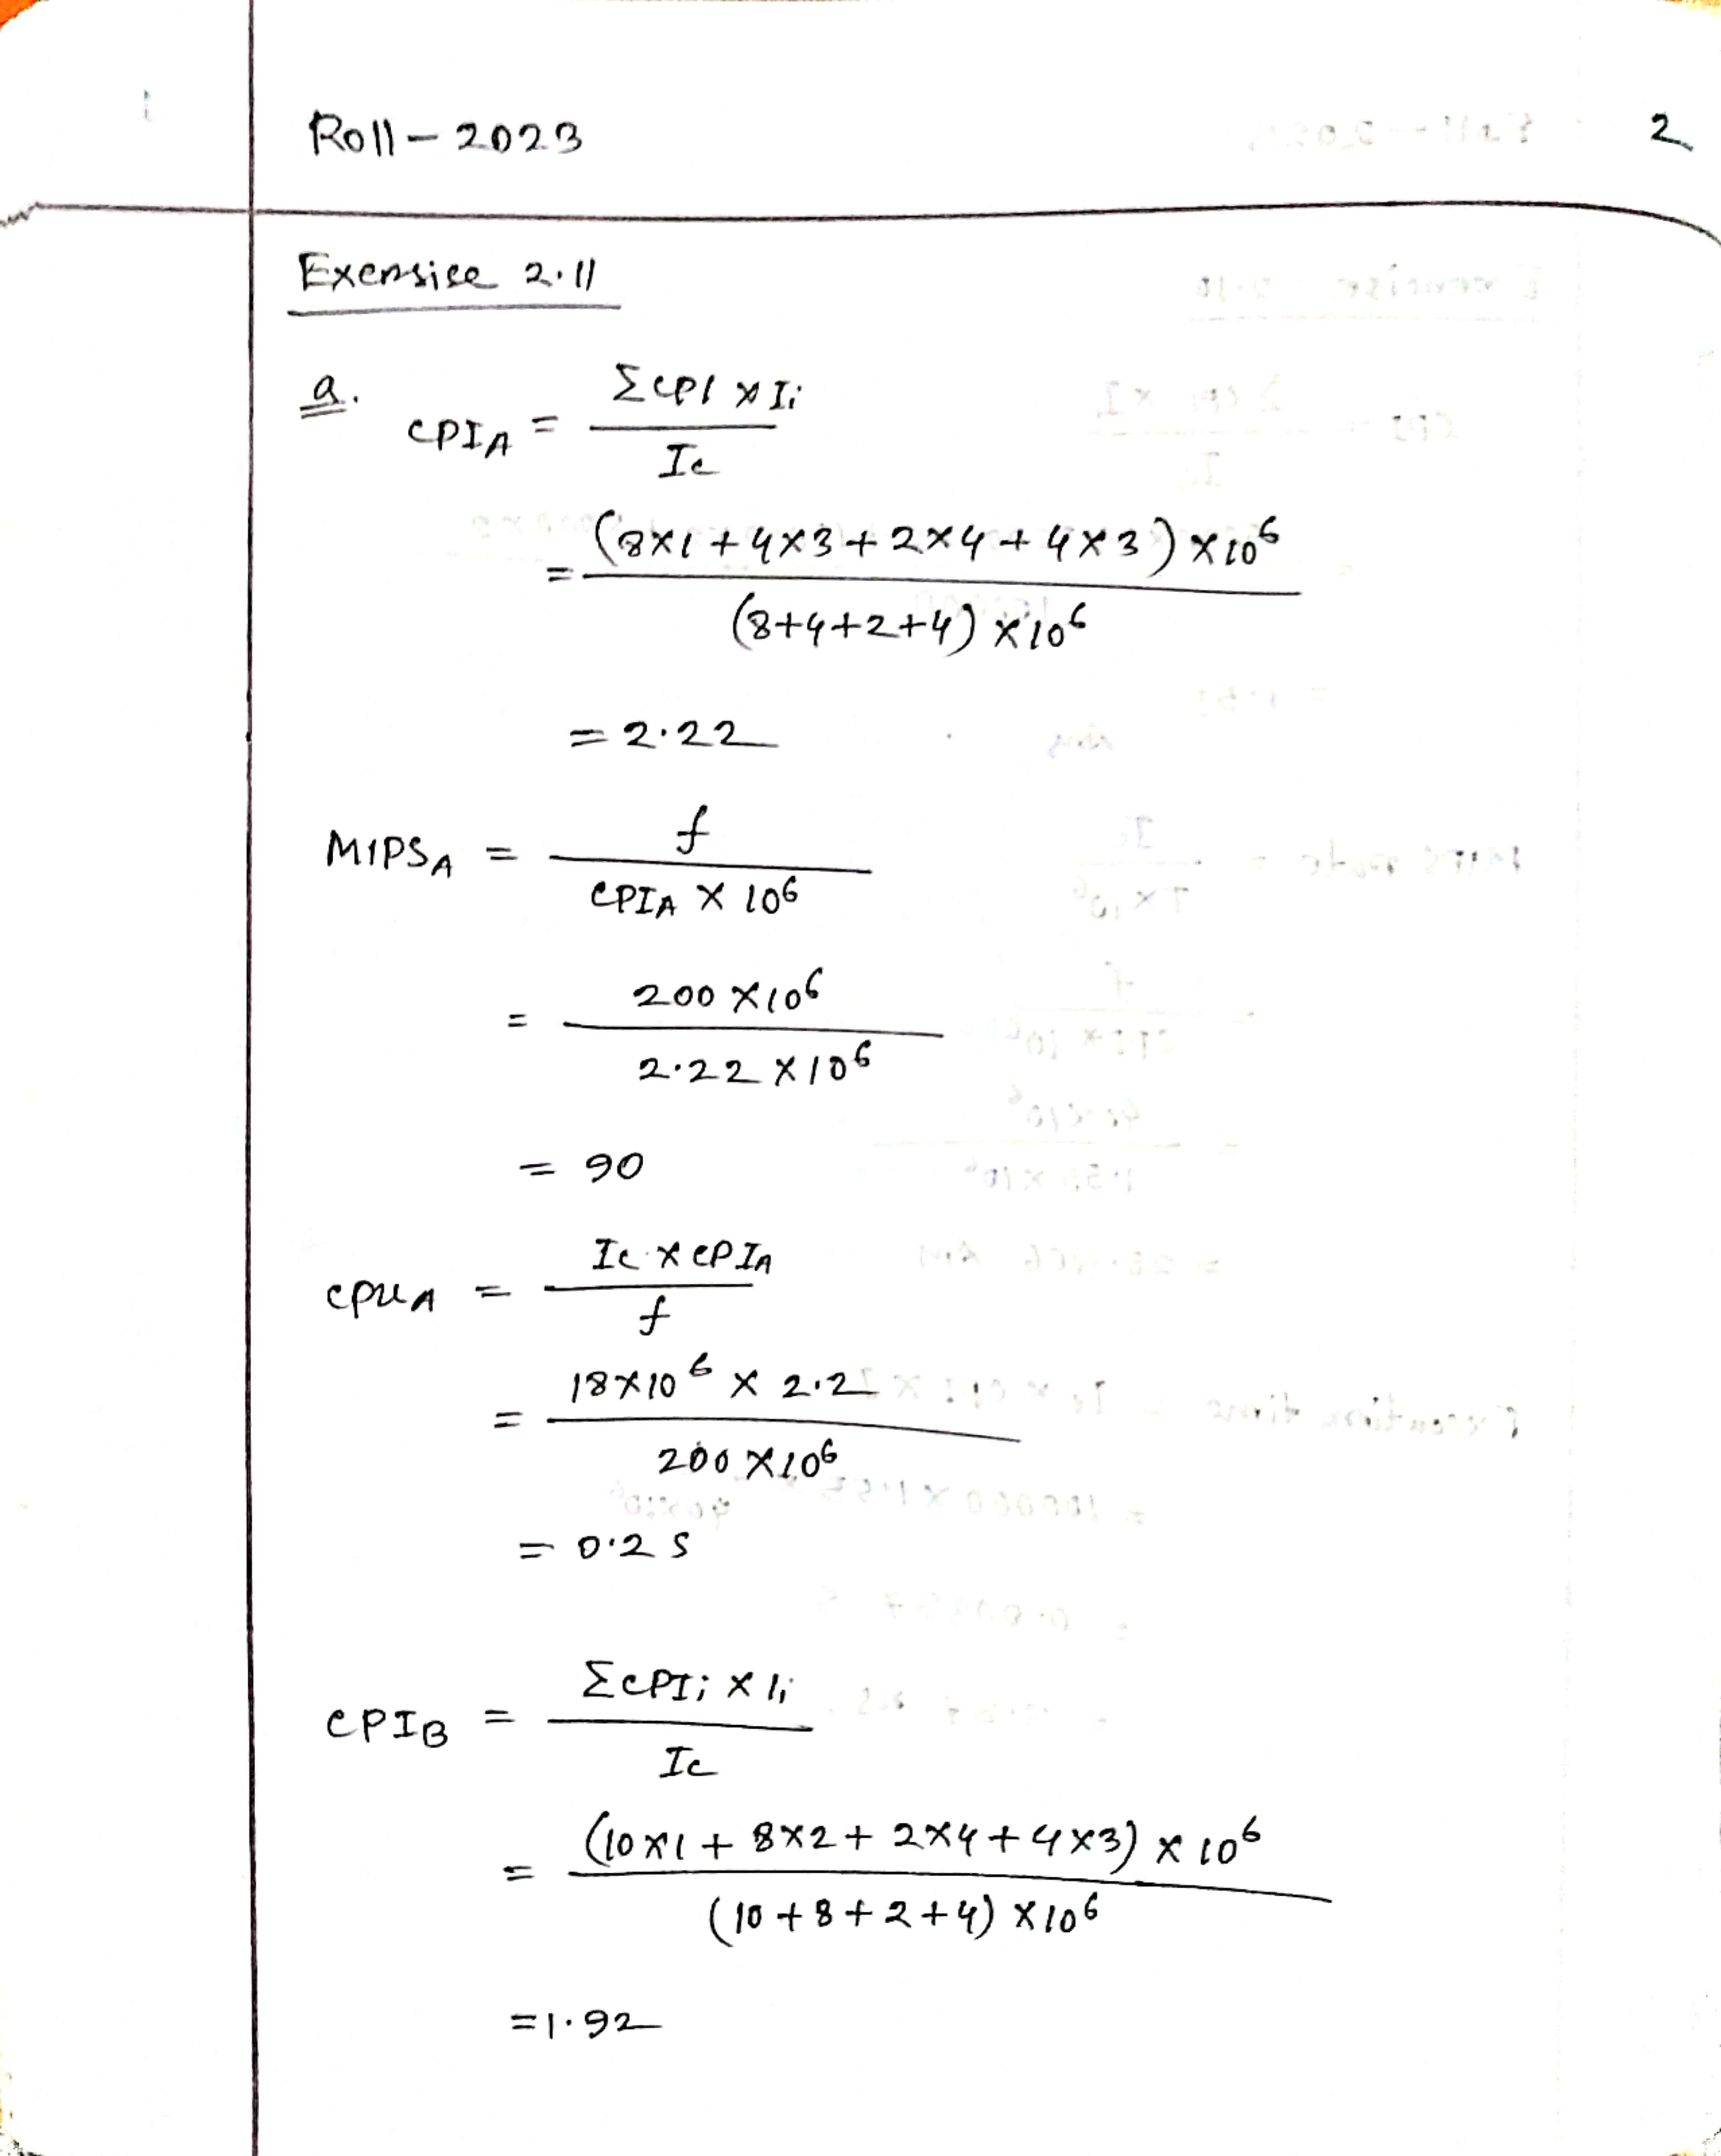 Roll - 2023
2
Exensise 2.11
a. CPI_A = ΣCPI × Ii / Ic
= (8×1 + 4×3 + 2×4 + 4×3) × 10^6 / (8+4+2+4) × 10^6
= 2.22
MIPS_A = f / CPI_A × 10^6
= 200 × 10^6 / 2.22 × 10^6
= 90
CPU_A = Ic × CPI_A / f
= 18×10^6 × 2.2 / 200 × 10^6
= 0.2 s
CPI_B = ΣCPIi × Ii / Ic
= (10×1 + 8×2 + 2×4 + 4×3) × 10^6 / (10+8+2+4) × 10^6
= 1.92